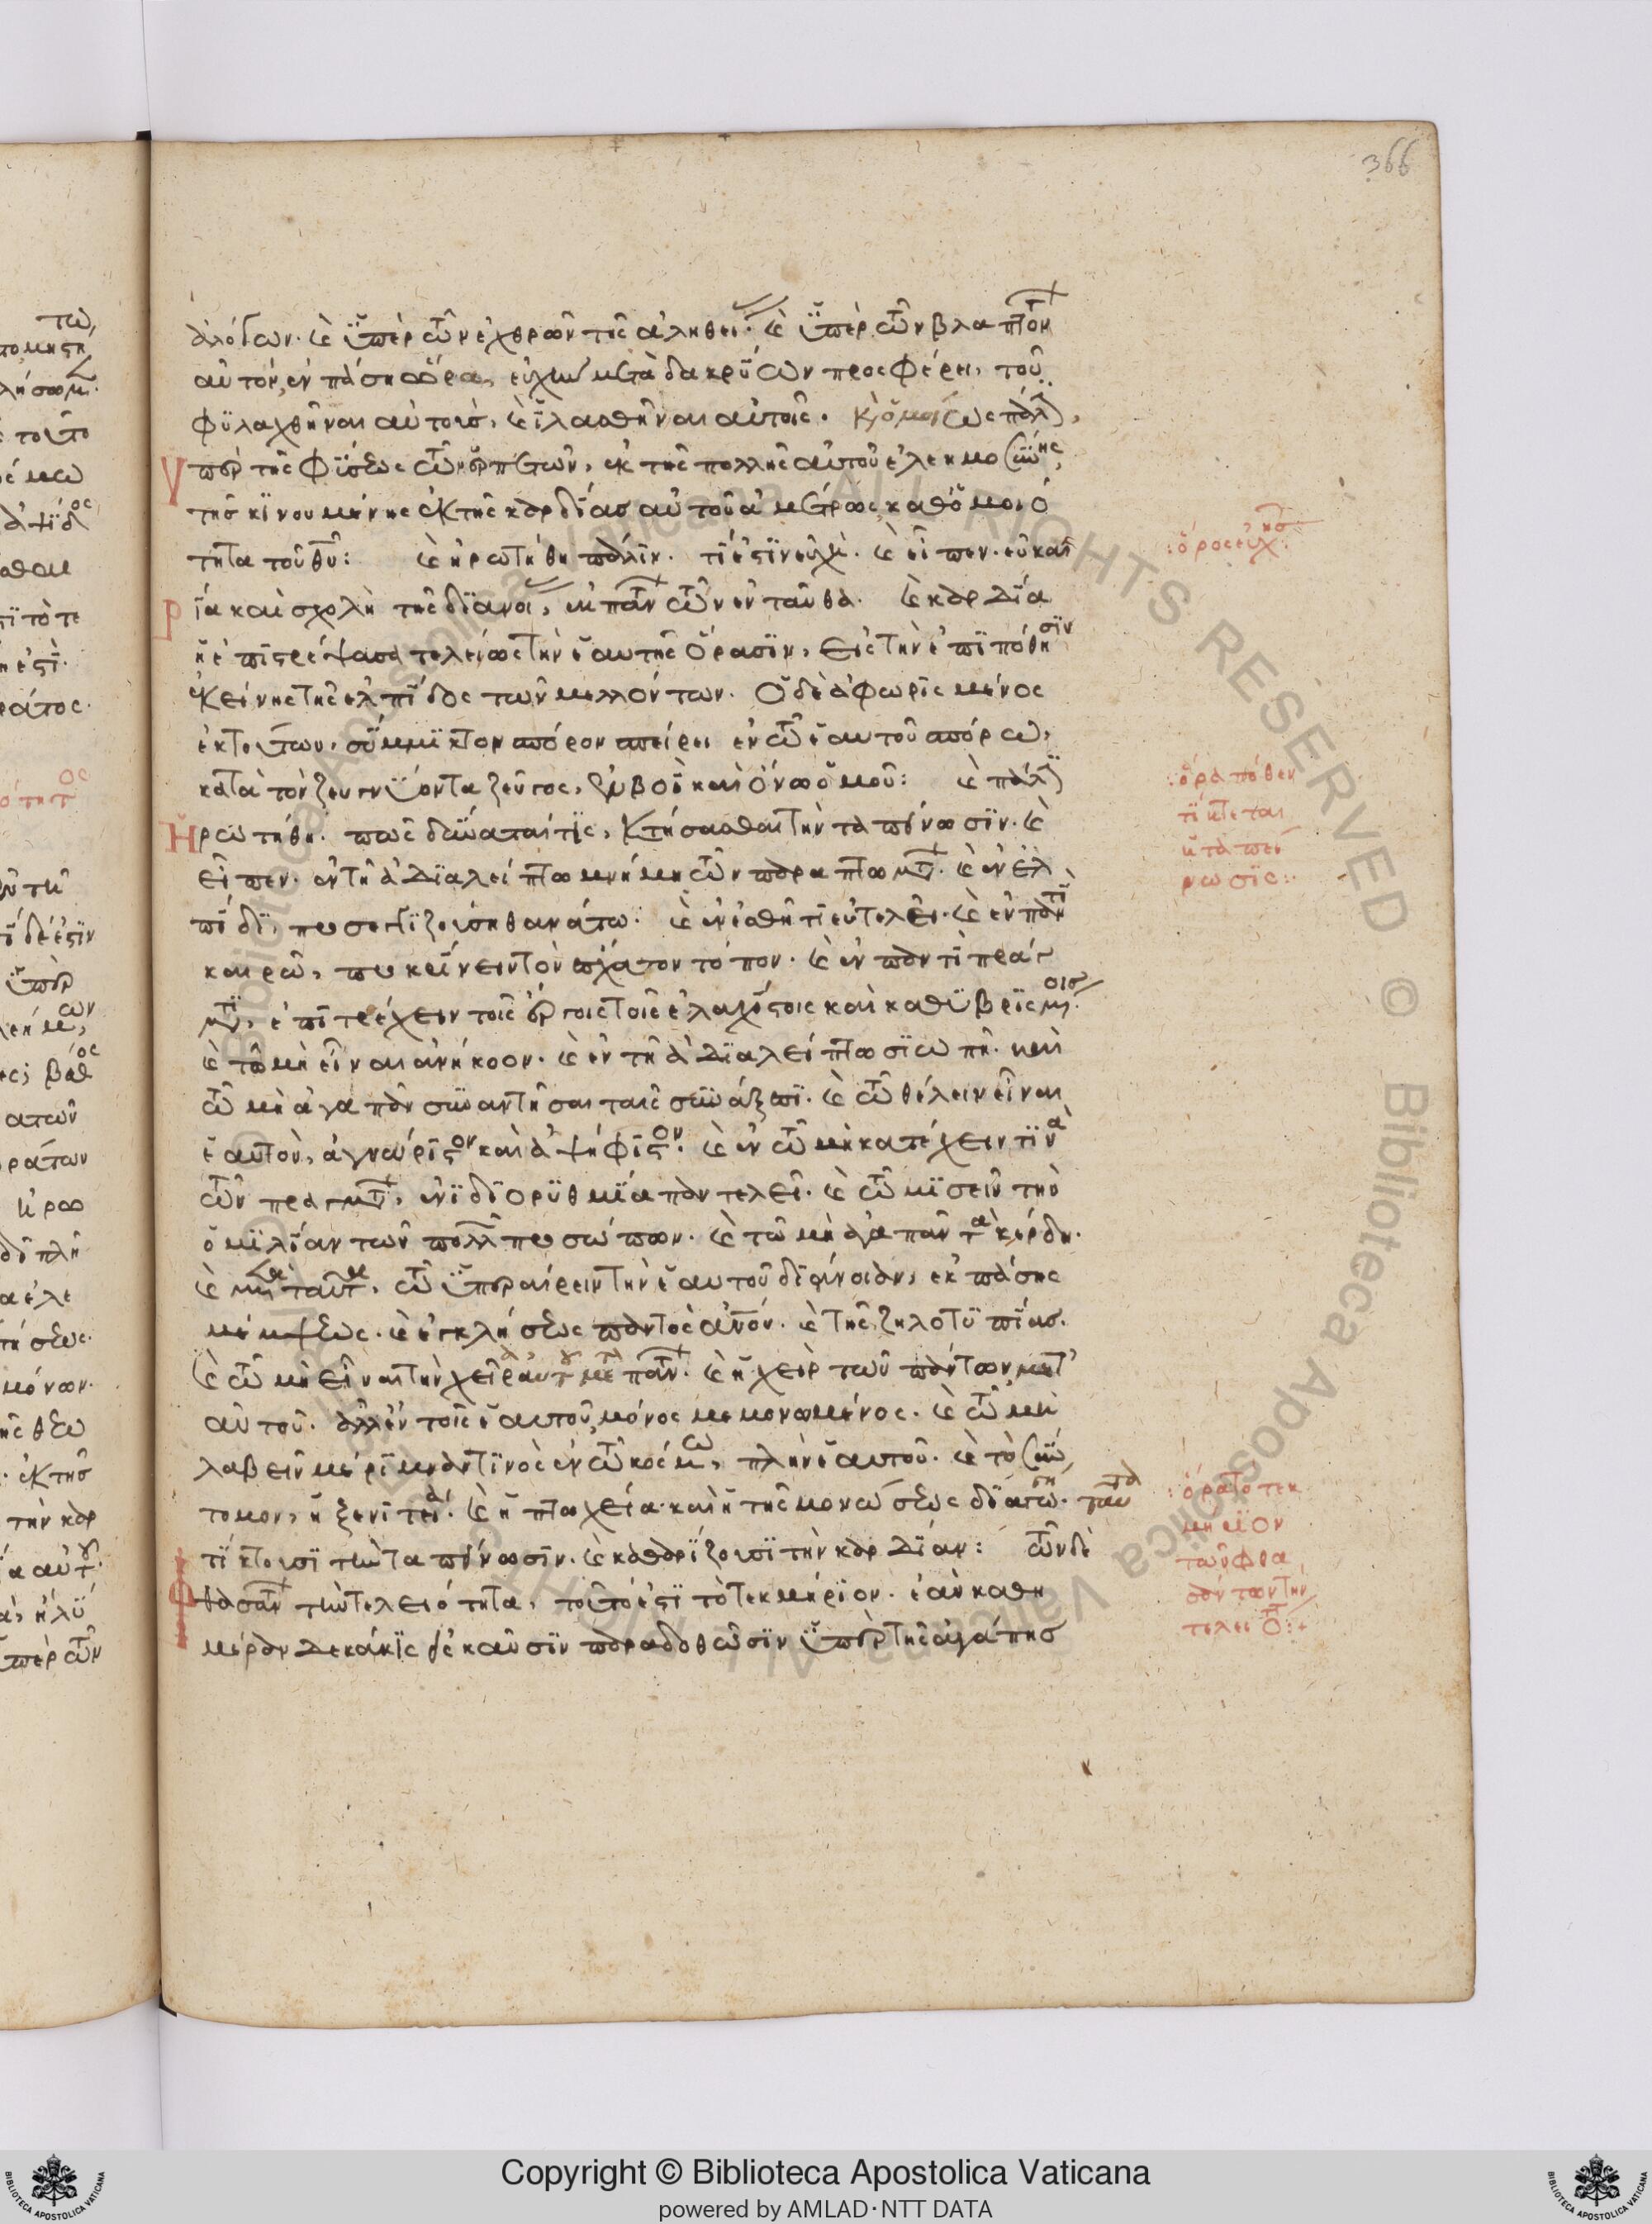 366
ἀλόγων. καὶ ὑπὲρ τῶν ἐχθρῶν τῆς ἀληθείας. καὶ ὑπὲρ τῶν βλαπτόντων
αὐτὸν, ἐν πάσῃ ὥρα, εὐχὴν μετὰ δακρύων προσφέρει, τοῦ
φυλαχθῆναι αὐτοὺς, καὶ ἱλασθῆναι αὐτοῖς. καὶ ὁμοίως πάλιν,
ὑπὲρ τῆς φύσεως τῶν ἑρπετῶν, ἐκ τῆς πολλῆς αὐτοῦ ἐλεημοσύνης,
τῆς κινουμένης ἐκ τῆς καρδίας αὐτοῦ ἀμέτρως καθ' ὁμοιό
τητα τοῦ θυ: καὶ ἠρωτήθη πάλιν. τί ἐστιν εὐχή. καὶ εἶπεν. εὐκαι
ρία καὶ σχολὴ τῆς διανοίας, ἐκ πάντων τῶν ἐνταῦθα. καὶ καρδία
ἡ ἐπιστρέψασα τελείως τὴν ἑαυτῆς ὅρασιν, εἰς τὴν ἐπιπόθησιν
ἐκείνης τῆς ἐλπίδος τῶν μελλόντων. Ὁ δὲ ἀφωρισμένος
ἐκ τούτων, σύμμικτον σπόρον σπείρει ἐν τῷ ἑαυτοῦ σπόρω,
κατὰ τὸν ζευγνύοντα ζεῦγος, ἐν βοῒ καὶ ὄνω ὁμοῦ: καὶ πάλιν
Ἠρωτήθη. πῶς δύναταί τις, κτήσασθαι τὴν ταπείνωσιν. καὶ
εἶπεν. ἐν τῇ ἀδιαλείπτω μνήμη τῶν παραπτωμάτων. καὶ ἐν ἐλ
πίδι, προσεγγιζούση θανάτω. καὶ ἐν ἐσθῆτι εὐτελεῖ. καὶ ἐν παντὶ
καιρῶ, προκρίνειν τὸν ἔσχατον τόπον. καὶ ἐν παντὶ πράγ
ματι, ἐπιτρέχειν τοῖς ἔργοις τοῖς ἐλαχίστοις καὶ καθυβρισμένοις
καὶ τῶ μὴ εἶναι ἀνήκοον. καὶ ἐν τῇ ἀδιαλείπτω σιωπῆ. καὶ
τῶ μὴ ἀγαπᾶν συναντῆσαι ταῖς συνάξεσι. καὶ τῶ θέλειν εἶναι
ἑαυτὸν, ἀγνώριστον καὶ ἀψήφιστον. καὶ ἐν τῶ μὴ κατέχειν τινὰ
τῶν πραγμάτων, ἐν ἰδιορυθμία παντελεῖ. καὶ τῶ μισεῖν τὴν
ὁμιλίαν τῶν πολλῶν προσώπων. καὶ τῶ μὴ ἀγαπᾶν τὰ κέρδη.
καὶ μετὰ ταῦτα, τῶ ὑπεραίρειν τὴν ἑαυτοῦ διάνοιαν, ἐκ πάσης
μέμψεως. καὶ ἐγκλήσεως παντὸς ἀνου. καὶ τῆς ζηλοτυπίας.
καὶ τῶ μὴ εἶναι τὴν χεῖρα αὐτοῦ μετὰ πάντων. καὶ ἡ χεὶρ τῶν πάντων, μετ'
αὐτοῦ. ἀλλ' ἐν τοῖς ἑαυτοῦ, μόνος μεμονωμένος. καὶ τῶ μὴ
λαβεῖν μέριμναν τινὸς ἐν τῶ κόσμω, πλὴν ἑαυτοῦ. καὶ τὸ σύν
τομον, ἡ ξενιτεία. καὶ ἡ πτωχεία καὶ ἡ τῆς μονώσεως διαγωγή. ταῦτα
τίκτουσι τὴν ταπείνωσιν. καὶ καθαρίζουσι τὴν καρδίαν: τῶν δὲ
φθασάντων τὴν τελειότητα, τοῦτό ἐστι τὸ τεκμήριον. ἐὰν καθη
μέραν δεκάκις εἰς καῦσιν παραδοθῶσιν ὑπὲρ τῆς ἀγάπης
:ὅρος εὐχῆς:
:ὅρα πόθεν
τίκτεται
ἡ ταπεί
νωσις:
:ὅρα τὸ τεκ
μήριον
τῶν φθα
σάντων τὴν
τελειότητα:+
Copyright © Biblioteca Apostolica Vaticana
powered by AMLAD·NTT DATA